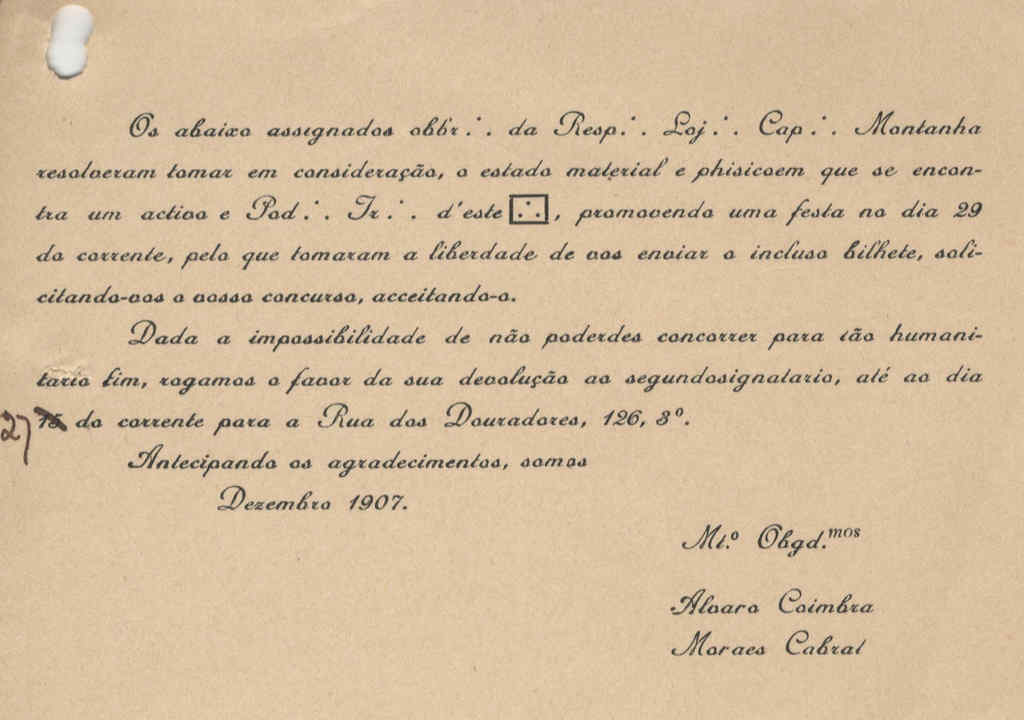 Os abaixo assignados obbr∴ da Resp∴ Loj∴ Cap∴ Montanha
resolveram tomar em consideração, o estado material e phisicoem que se encon-
tra um activo e Pod∴ Ir∴ d'este [∴], promovendo uma festa no dia 29
do corrente, pelo que tomaram a liberdade de vos enviar o incluso bilhete, soli-
citando-vos o vosso concurso, acceitando-o.
Dada a impossibilidade de não poderdes concorrer para tão humani-
tario fim, rogamos o favor da sua devolução ao segundosignatario, até ao dia
27 15 do corrente para a Rua dos Douradores, 126, 3º.
Antecipando os agradecimentos, somos
Dezembro 1907.
Mt.º Obgd.mos
Alvaro Coimbra
Moraes Cabral